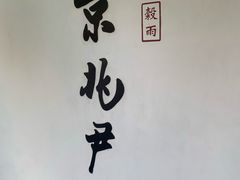 京兆尹
穀雨